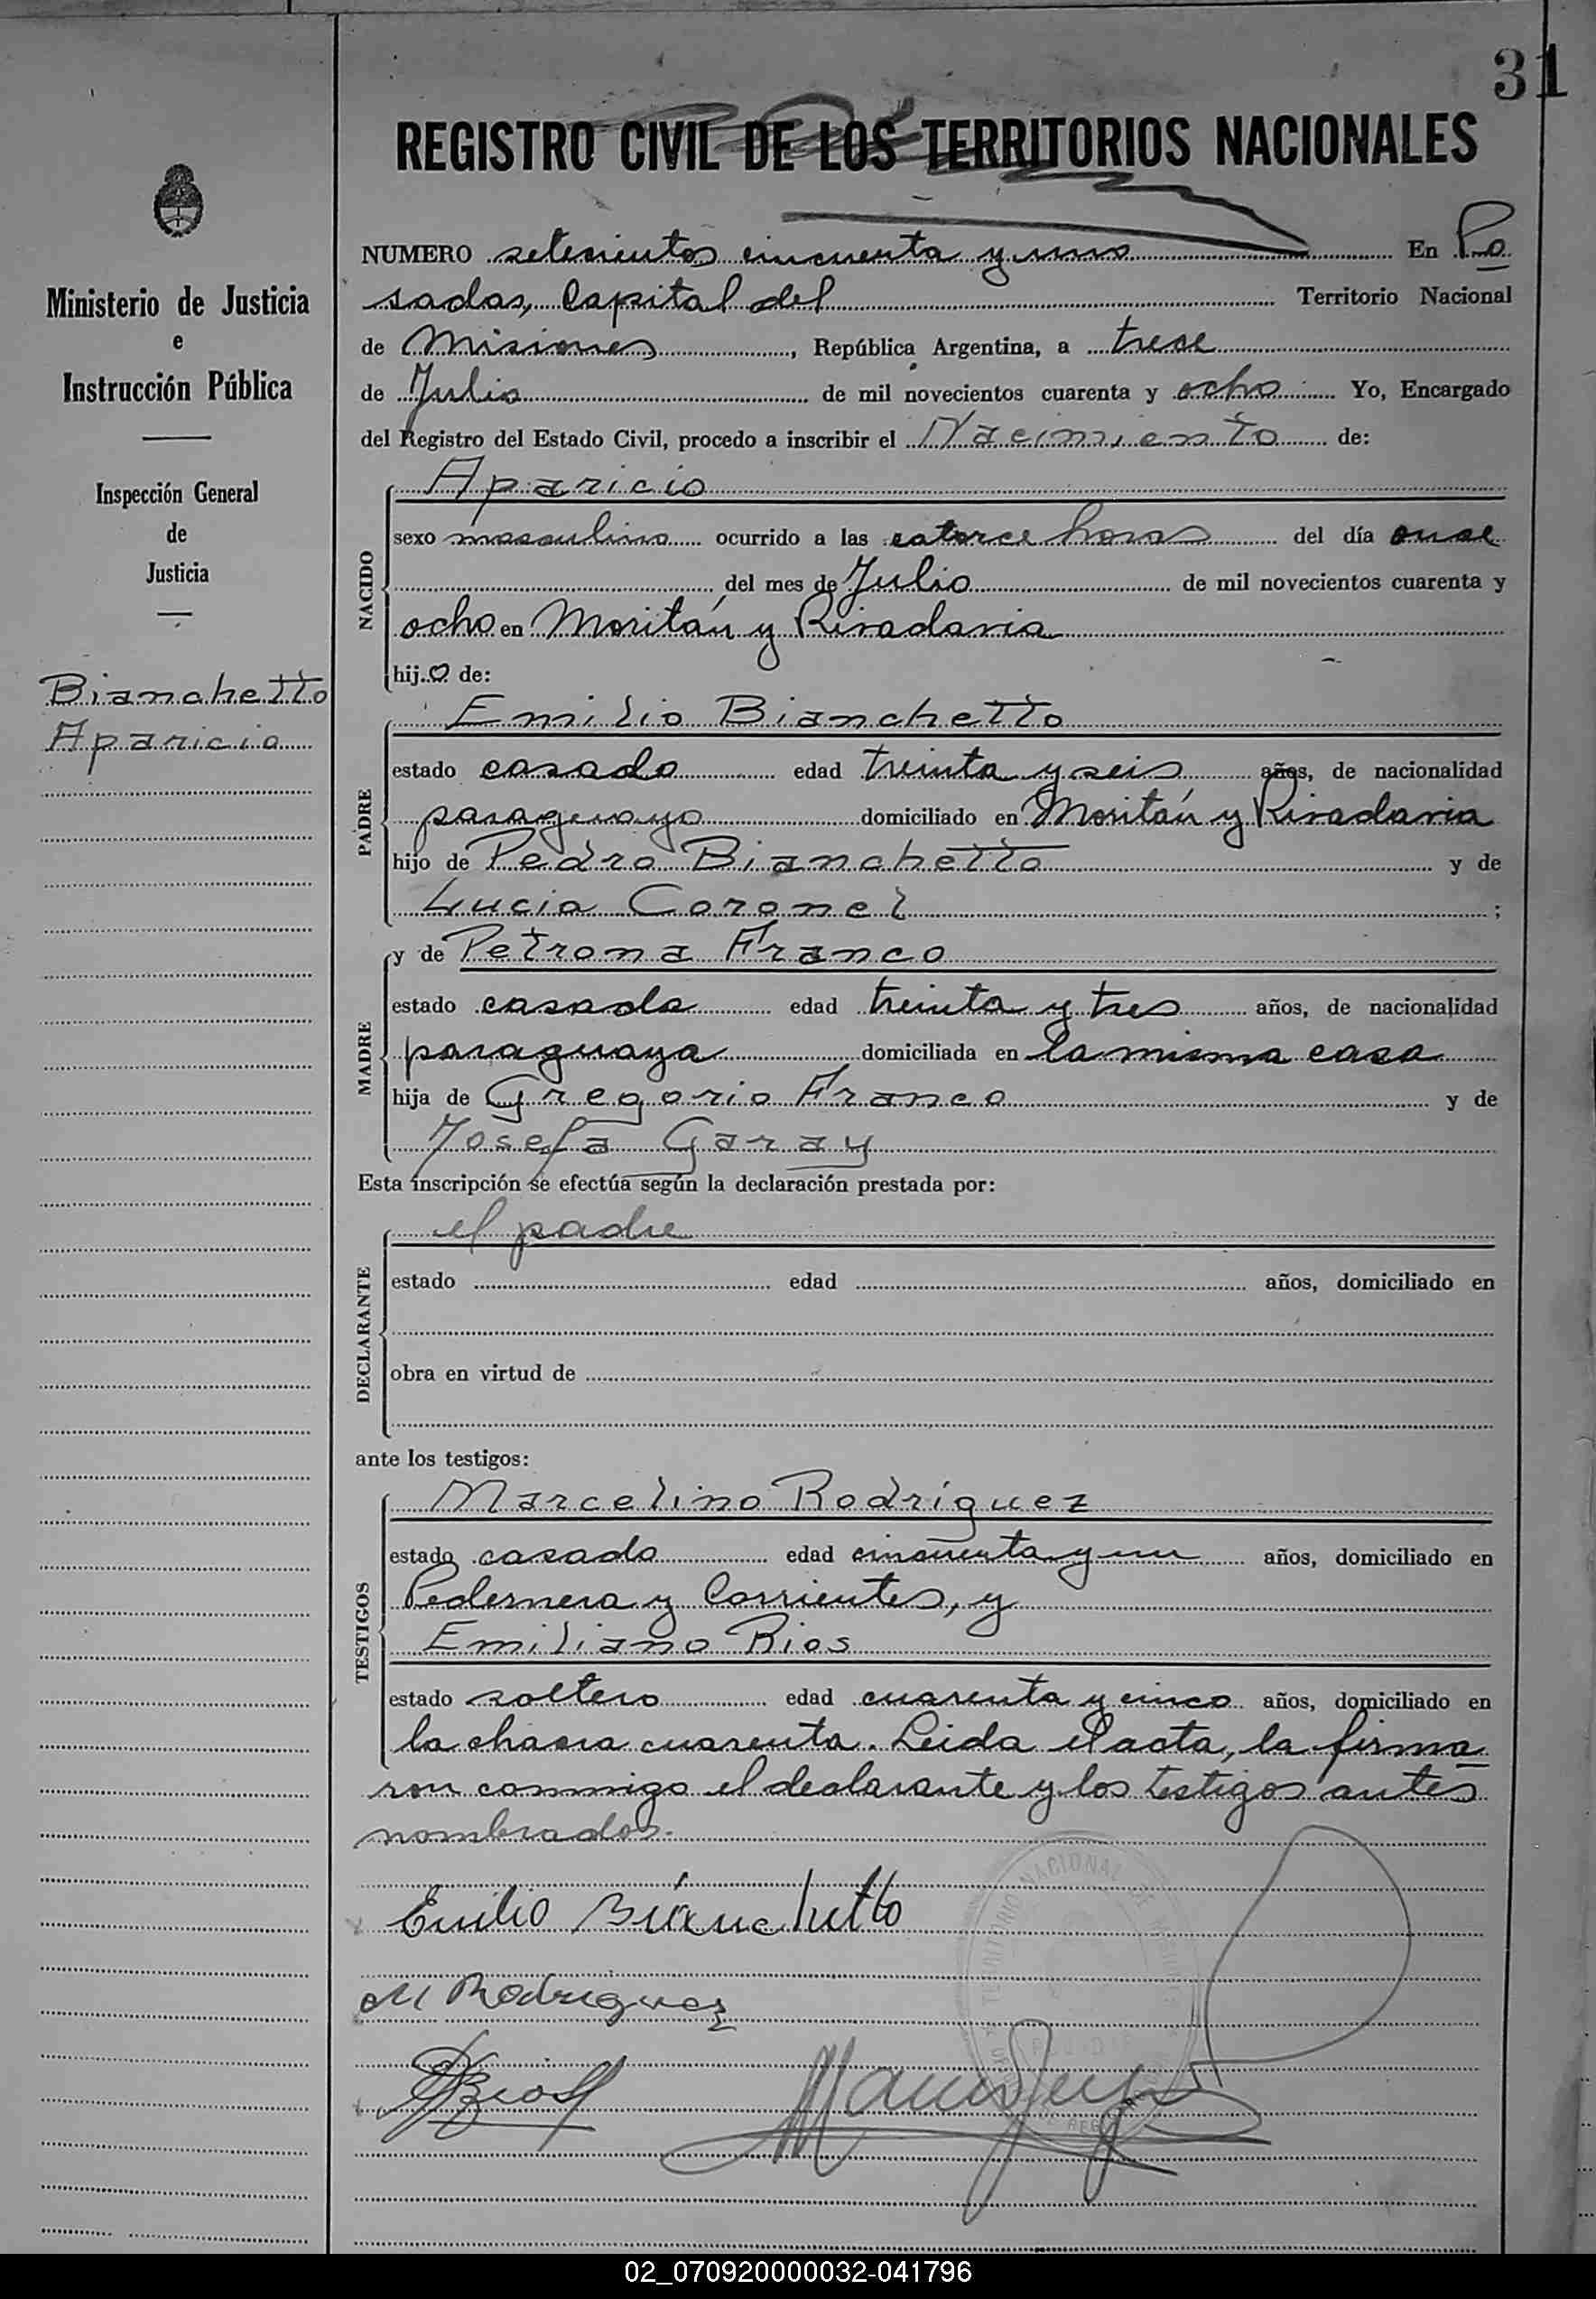 31
REGISTRO CIVIL DE LOS TERRITORIOS NACIONALES
Ministerio de Justicia
e
Instrucción Pública
Inspección General
de
Justicia
Bianchetto
Aparicio
NUMERO setecientos cincuenta y uno En Po
sadas, Capital del Territorio Nacional
de Misiones, República Argentina, a trece
de Julio de mil novecientos cuarenta y ocho Yo, Encargado
del Registro del Estado Civil, procedo a inscribir el Nacimiento de:
NACIDO
Aparicio
sexo masculino ocurrido a las catorce horas del día once
del mes de Julio de mil novecientos cuarenta y
ocho en Moritán y Rivadavia
hijo de:
PADRE
Emilio Bianchetto
estado casado edad treinta y seis años, de nacionalidad
paraguayo domiciliado en Moritán y Rivadavia
hijo de Pedro Bianchetto y de
Lucia Coronel ;
MADRE
y de Petrona Franco
estado casada edad treinta y tres años, de nacionalidad
paraguaya domiciliada en la misma casa
hija de Gregorio Franco y de
Josefa Garay
Esta inscripción se efectúa según la declaración prestada por:
DECLARANTE
el padre
estado edad años, domiciliado en
obra en virtud de
ante los testigos:
TESTIGOS
Marcelino Rodríguez
estado casado edad cincuenta y un años, domiciliado en
Pedernera y Corrientes, y
Emiliano Rios
estado soltero edad cuarenta y cinco años, domiciliado en
la chacra cuarenta. Leida el acta, la firma
ron conmigo el declarante y los testigos antes
nombrados.
Emilio Bianchetto
M Rodriguez
02_070920000032-041796